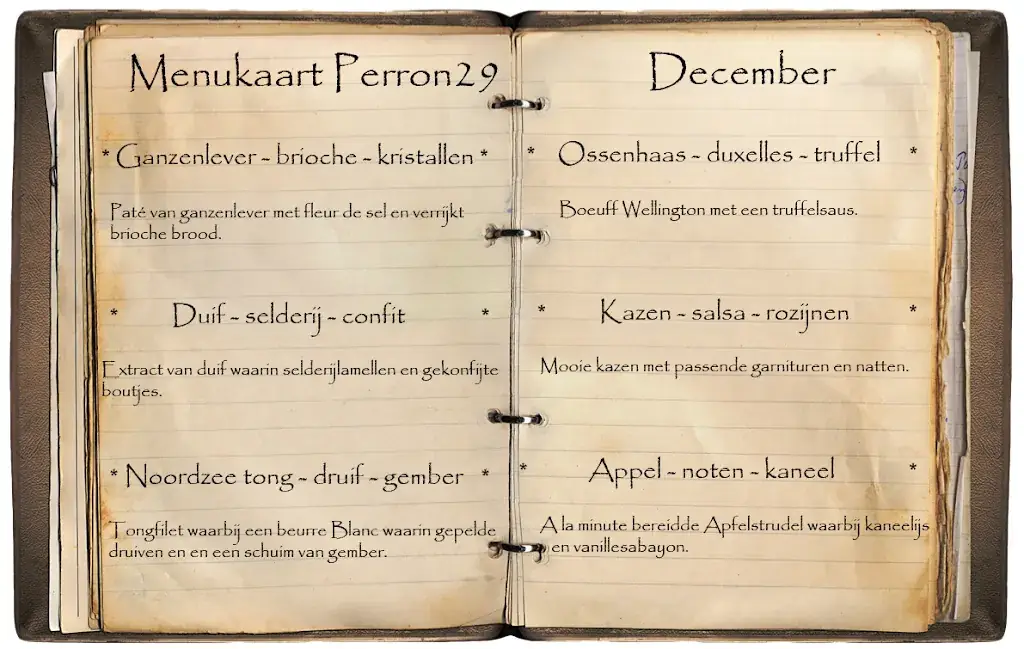 Menukaart Perron29
* Ganzenlever - brioche - kristallen *
Paté van ganzenlever met fleur de sel en verrijkt
brioche brood.
* Duif - selderij - confit *
Extract van duif waarin selderijlamellen en gekonfijte
boutjes.
* Noordzee tong - druif - gember *
Tongfilet waarbij een beurre Blanc waarin gepelde
druiven en en een schuim van gember.
December
* Ossenhaas - duxelles - truffel *
Boeuff Wellington met een truffelsaus.
* Kazen - salsa - rozijnen *
Mooie kazen met passende garnituren en natten.
* Appel - noten - kaneel *
A la minute bereidde Apfelstrudel waarbij kaneelijs
en vanillesabayon.